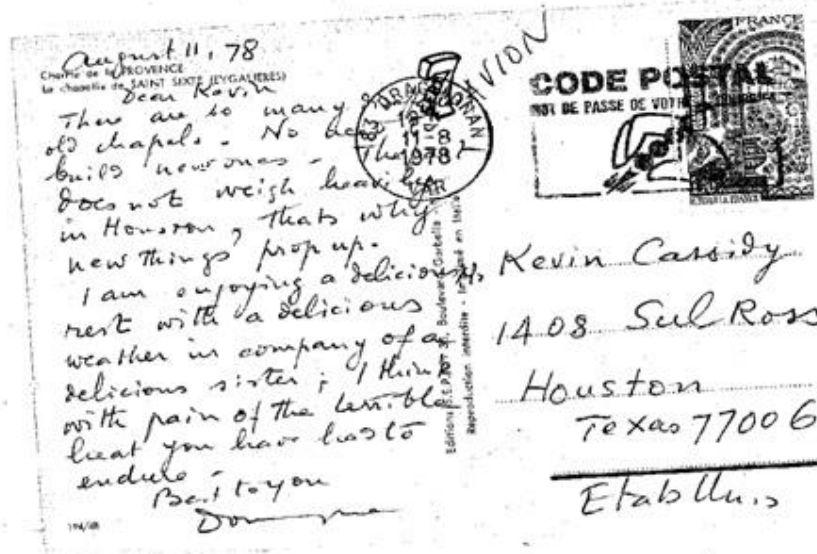 August 11, 78
de la PROVENCE
La chapelle de SAINT SIXTE (EYGALIERES)
Dear Kevin
There are so many
old chapels. No need to
build new ones. The
does not weigh heavily
in Houston, thats why
new things prop up.
I am enjoying a delicious
rest with a delicious
weather in company of a
delicious sister; I think
with pain of the terrible
heat you have had to
endure -
Best to you
Dominique
194/68
Boulevard Garbella
Reproduction interdite - Imprimé en Italie
AVION
83
11-8
1978
VAR
CODE POSTAL
MOT DE PASSE DE VOTRE
FRANCE
Kevin Cassidy
1408 Sul Ross
Houston
Texas 77006